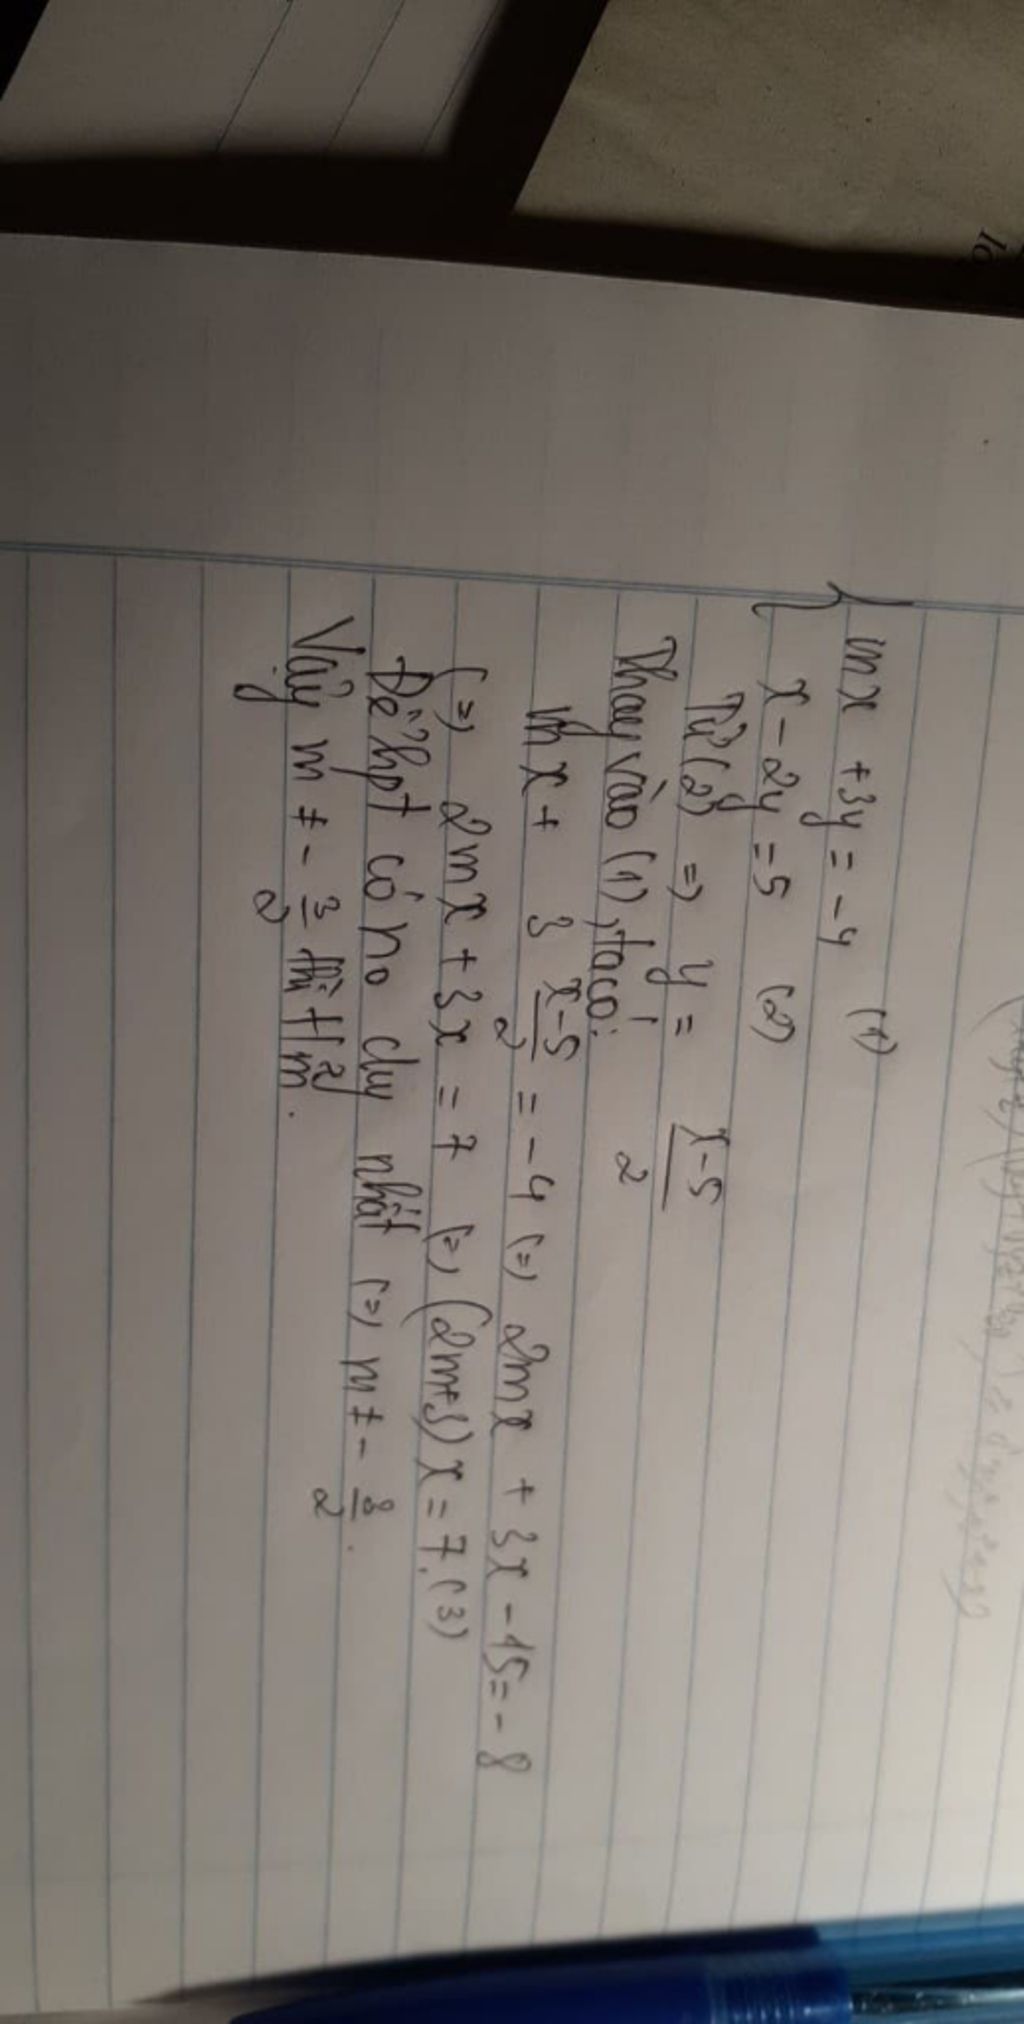 mx + 3y = -4 (1)
x - 2y = 5 (2)
Từ (2) => y = x-5/2
Thay vào (1), ta có:
mx + 3 x-5/2 = -4 (=) 2mx + 3x - 15 = -8
(=) 2mx + 3x = 7 (=) (2m+3) x = 7. (3)
Để hpt có no duy nhất (=) m ≠ - 3/2.
Vậy m ≠ - 3/2 thì t/m.